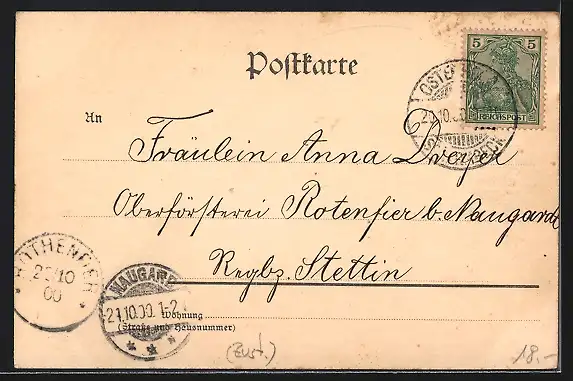 Postkarte
5
REICHSPOST
20.10.00
An
Fräulein Anna
Oberförsterei Rotenfier b. Naugard
Regbz. Stettin
ROTHENFIER
00
NAUGARD
21.10.00. 1-2
Wohnung
(Straße und Hausnummer)
(Zust.)
18.-